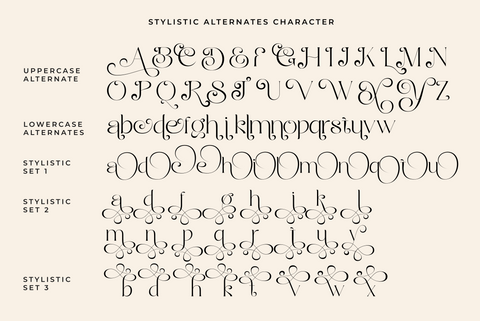 STYLISTIC ALTERNATES CHARACTER
UPPERCASE
ALTERNATE
A B C D E F G H I J K L M N
O P Q R S T U V W X Y Z
LOWERCASE
ALTERNATES
a b c d e f g h i j k l m n o p q r s t u v w
STYLISTIC
SET 1
STYLISTIC
SET 2
a d f g h i k l
m n p q r i u y
STYLISTIC
SET 3
b d h k t v w x